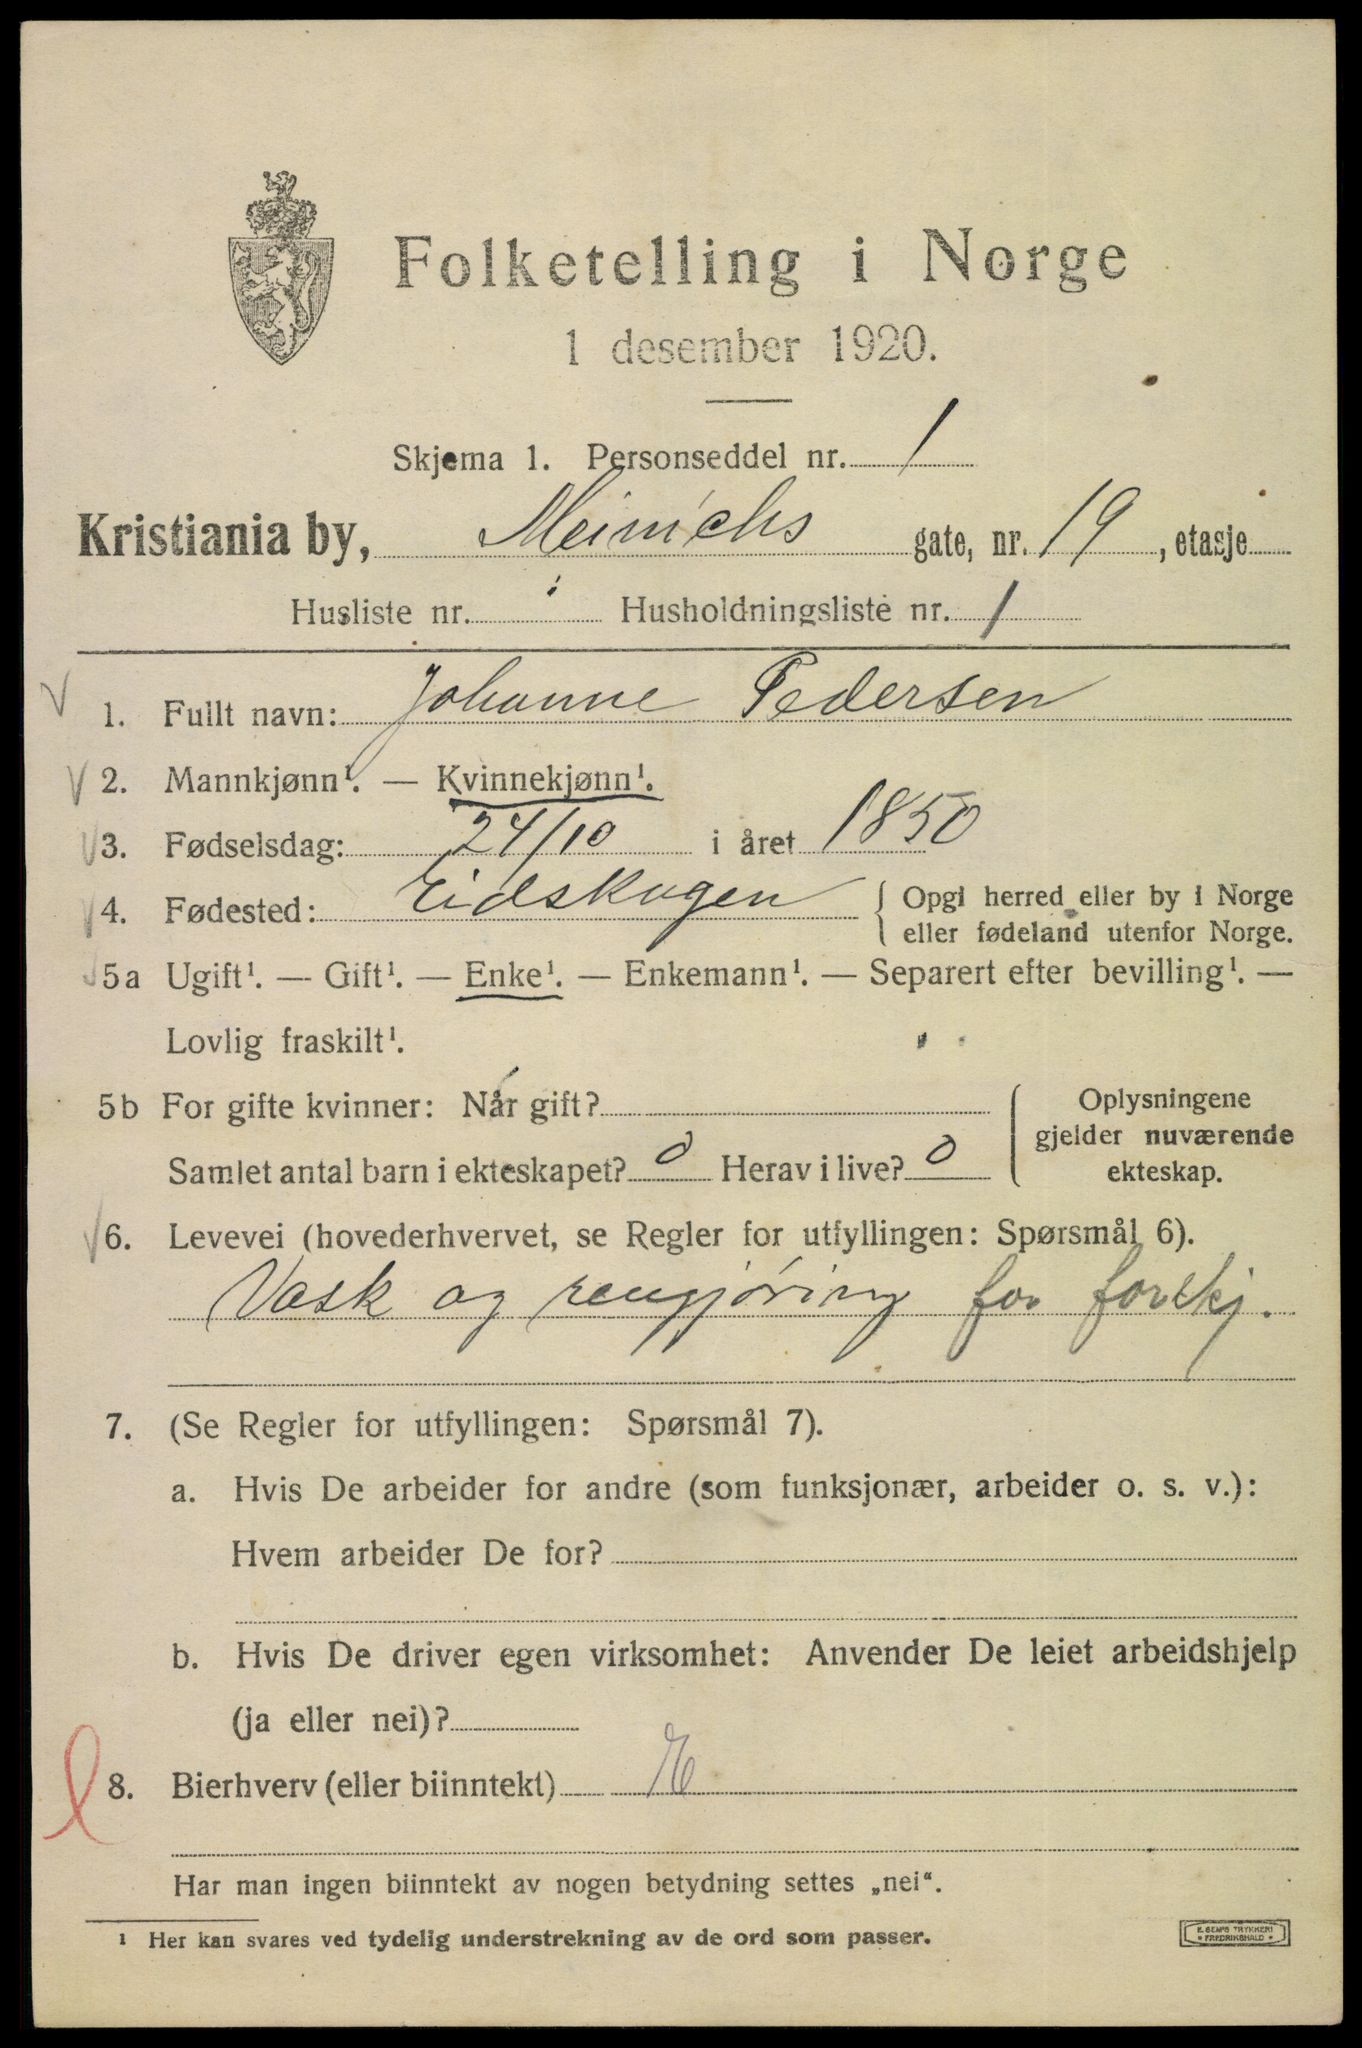 Folketelling i Norge
1 desember 1920.
Skjema 1. Personseddel nr. 1
Kristiania by, Meinichs gate, nr. 19, etasje
Husliste nr. Husholdningsliste nr. 1
1. Fullt navn: Johanne Pedersen
2. Mannkjønn¹. — Kvinnekjønn¹.
3. Fødselsdag: 24/10 i året 1850
4. Fødested: Eidskogen { Opgi herred eller by i Norge
eller fødeland utenfor Norge.
5a Ugift¹. — Gift¹. — Enke¹. — Enkemann¹. — Separert efter bevilling¹. —
Lovlig fraskilt¹.
5b For gifte kvinner: Når gift?
Samlet antal barn i ekteskapet? 0 Herav i live? 0
Oplysningene
gjelder nuværende
ekteskap.
6. Levevei (hovederhvervet, se Regler for utfyllingen: Spørsmål 6).
Vask og rengjøring for forskj.
7. (Se Regler for utfyllingen: Spørsmål 7).
a. Hvis De arbeider for andre (som funksjonær, arbeider o. s. v.):
Hvem arbeider De for?
b. Hvis De driver egen virksomhet: Anvender De leiet arbeidshjelp
(ja eller nei)?
8. Bierhverv (eller biinntekt)
Har man ingen biinntekt av nogen betydning settes „nei“.
¹ Her kan svares ved tydelig understrekning av de ord som passer.
E. SEMS TRYKKERI
* FREDRIKSHALD *